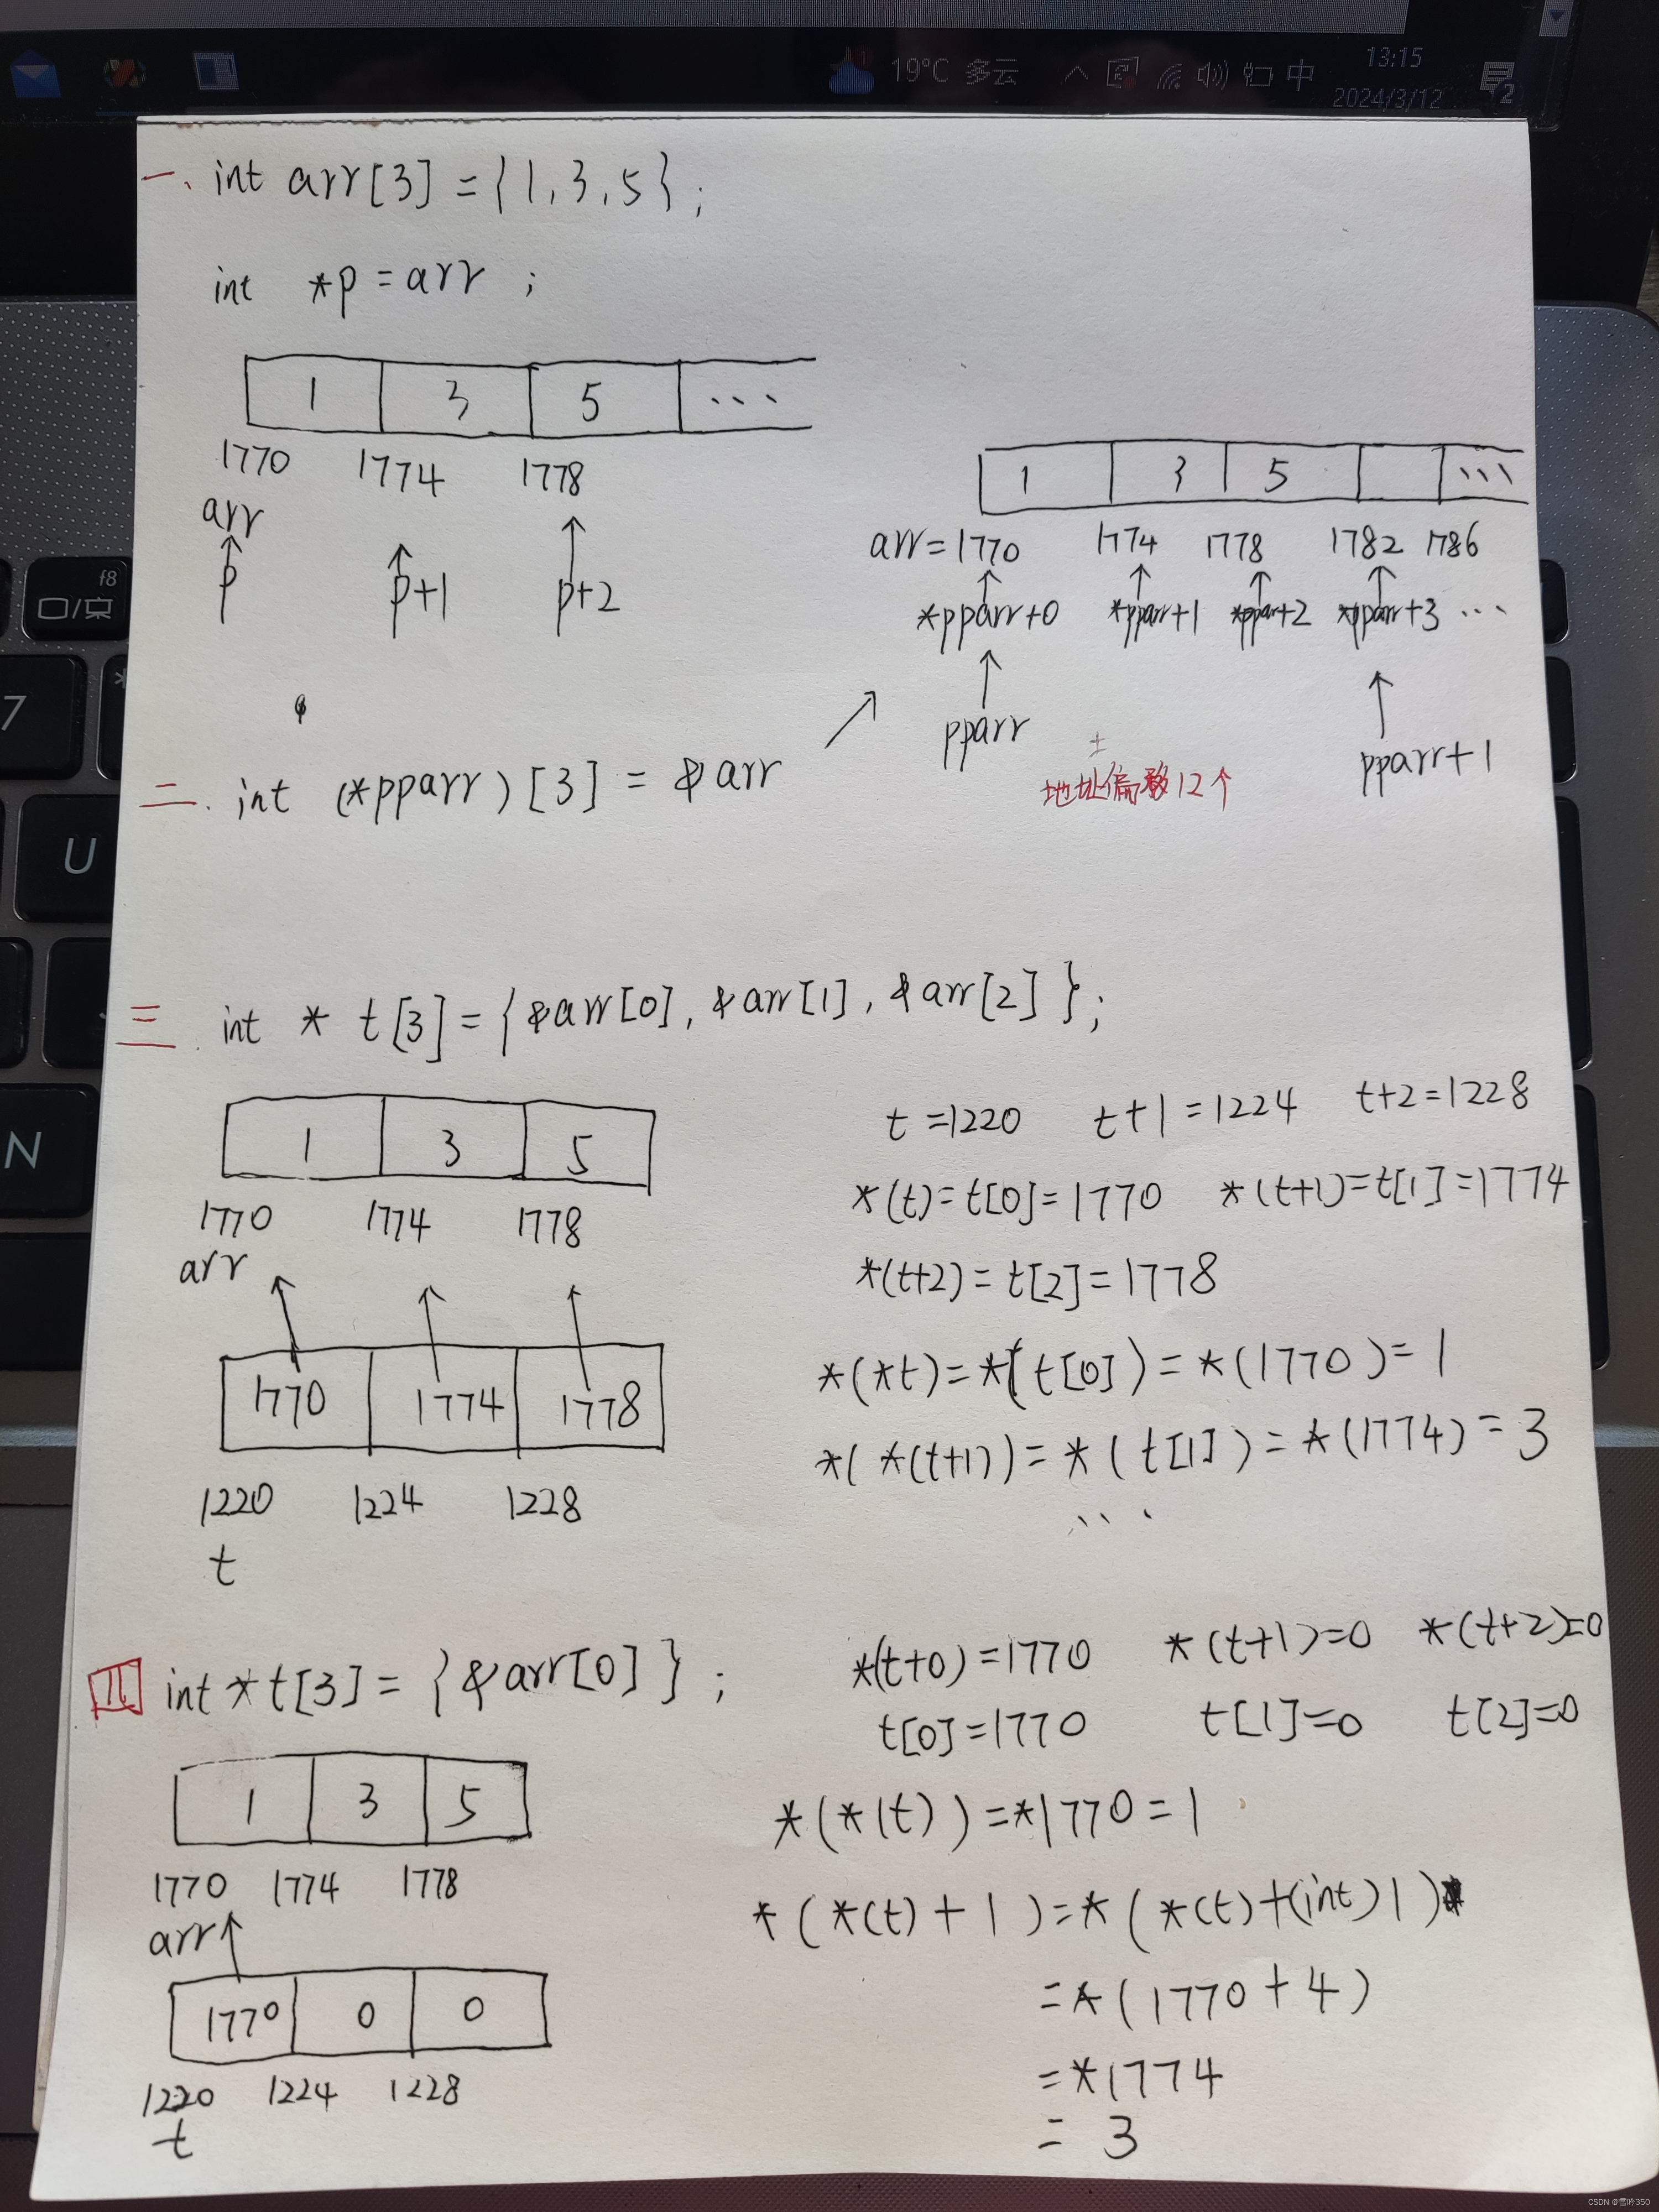 19°C 多云
中
13:15
2024/3/12
2
一、int arr[3]={1,3,5};
int *p=arr ;
1 3 5 ...
1770 1774 1778
arr
p p+1 p+2
1 3 5 ...
arr=1770 1774 1778 1782 1786
*pparr+0 *pparr+1 *pparr+2 *pparr+3 ...
pparr
pparr+1
±
地址偏移12个
二. int (*pparr)[3] = &arr
三. int * t[3]={&arr[0],&arr[1],&arr[2]};
1 3 5
1770 1774 1778
arr
1770 1774 1778
1220 1224 1228
t
t=1220 t+1=1224 t+2=1228
*(t)=t[0]=1770 *(t+1)=t[1]=1774
*(t+2)=t[2]=1778
*(*t)=*(t[0])=*(1770)=1
*(*(t+1))=*(t[1])=*(1774)=3
...
四 int*t[3]={&arr[0]};
1 3 5
1770 1774 1778
arr
1770 0 0
1220 1224 1228
t
*(t+0)=1770 *(t+1)=0 *(t+2)=0
t[0]=1770 t[1]=0 t[2]=0
*(*(t))=*1770=1
*(*(t)+1)=*(*(t)+(int)1)
=*(1770+4)
=*1774
= 3
f8
7
*
U
N
CSDN @雪吟350